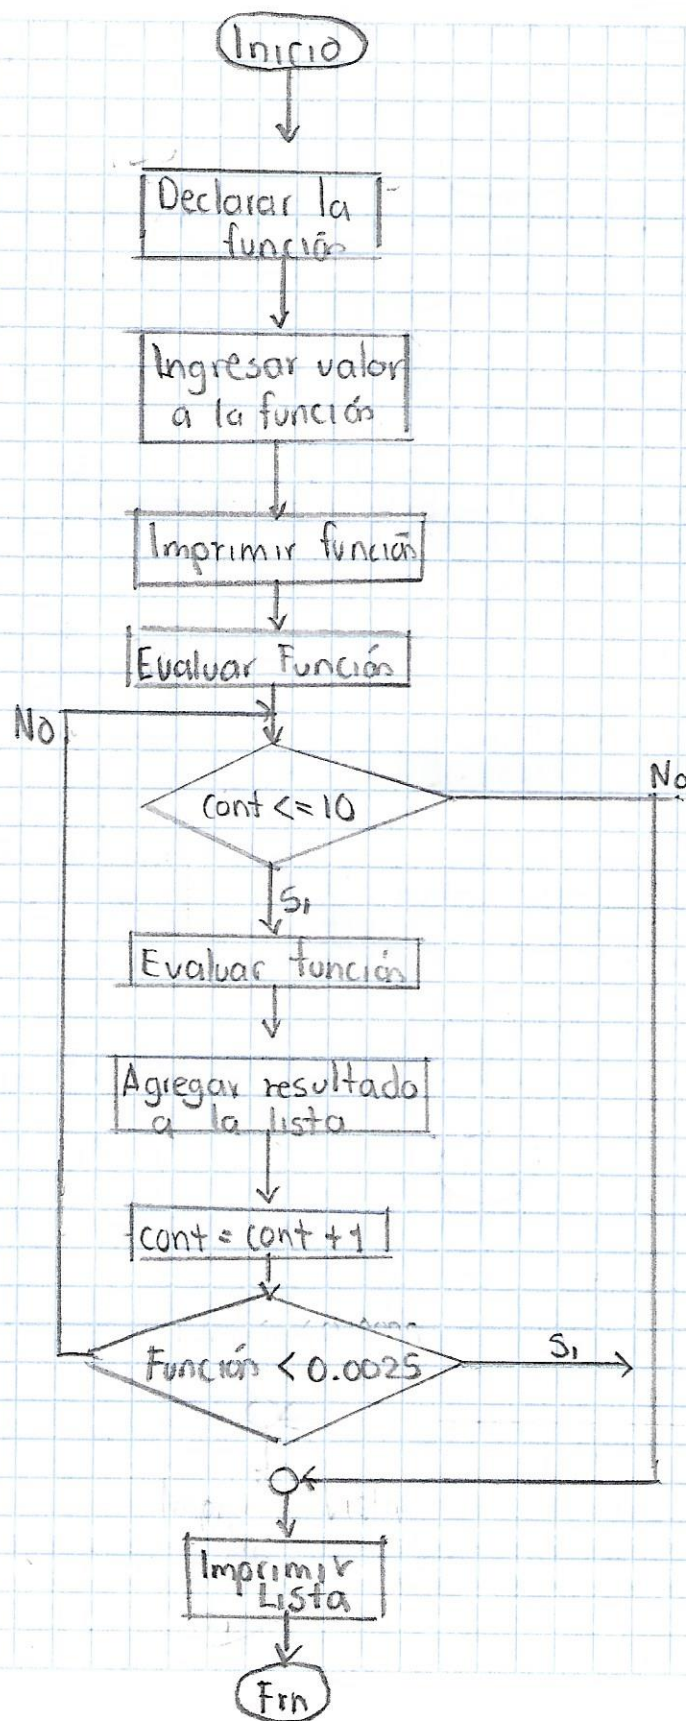 Inicio
Declarar la
función
Ingresar valor
a la función
Imprimir función
Evaluar Función
No
cont <= 10
No
Si
Evaluar función
Agregar resultado
a la lista
cont = cont + 1
Función < 0.0025
Si
Imprimir
Lista
Fin